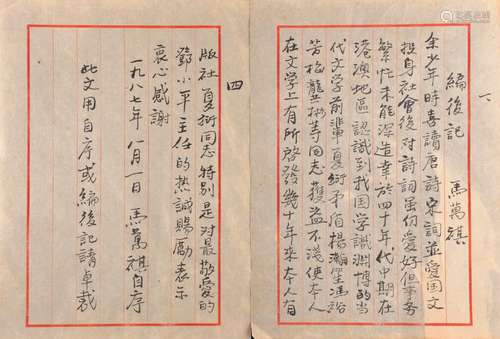 一、
編後記 馬萬祺
余少年時喜讀唐詩宋詞並愛國文
投身社會後对詩詞虽仍爱好但事务
繁忙未能深造幸於四十年代中期在
港澳地區認識到我国学識渊博的当
代文学前輩夏衍矛盾楊瀚笙馮裕
苦楊龔其术等同志獲益不淺使本人
在文学上有所啓發幾十年來本人有
四
版社夏衍同志特别是对最敬爱的
鄧小平主任的热誠賜勵表示
衷心感謝
一九八七年 八月一日 馬萬祺自序
此文用自序或編後記請卓裁